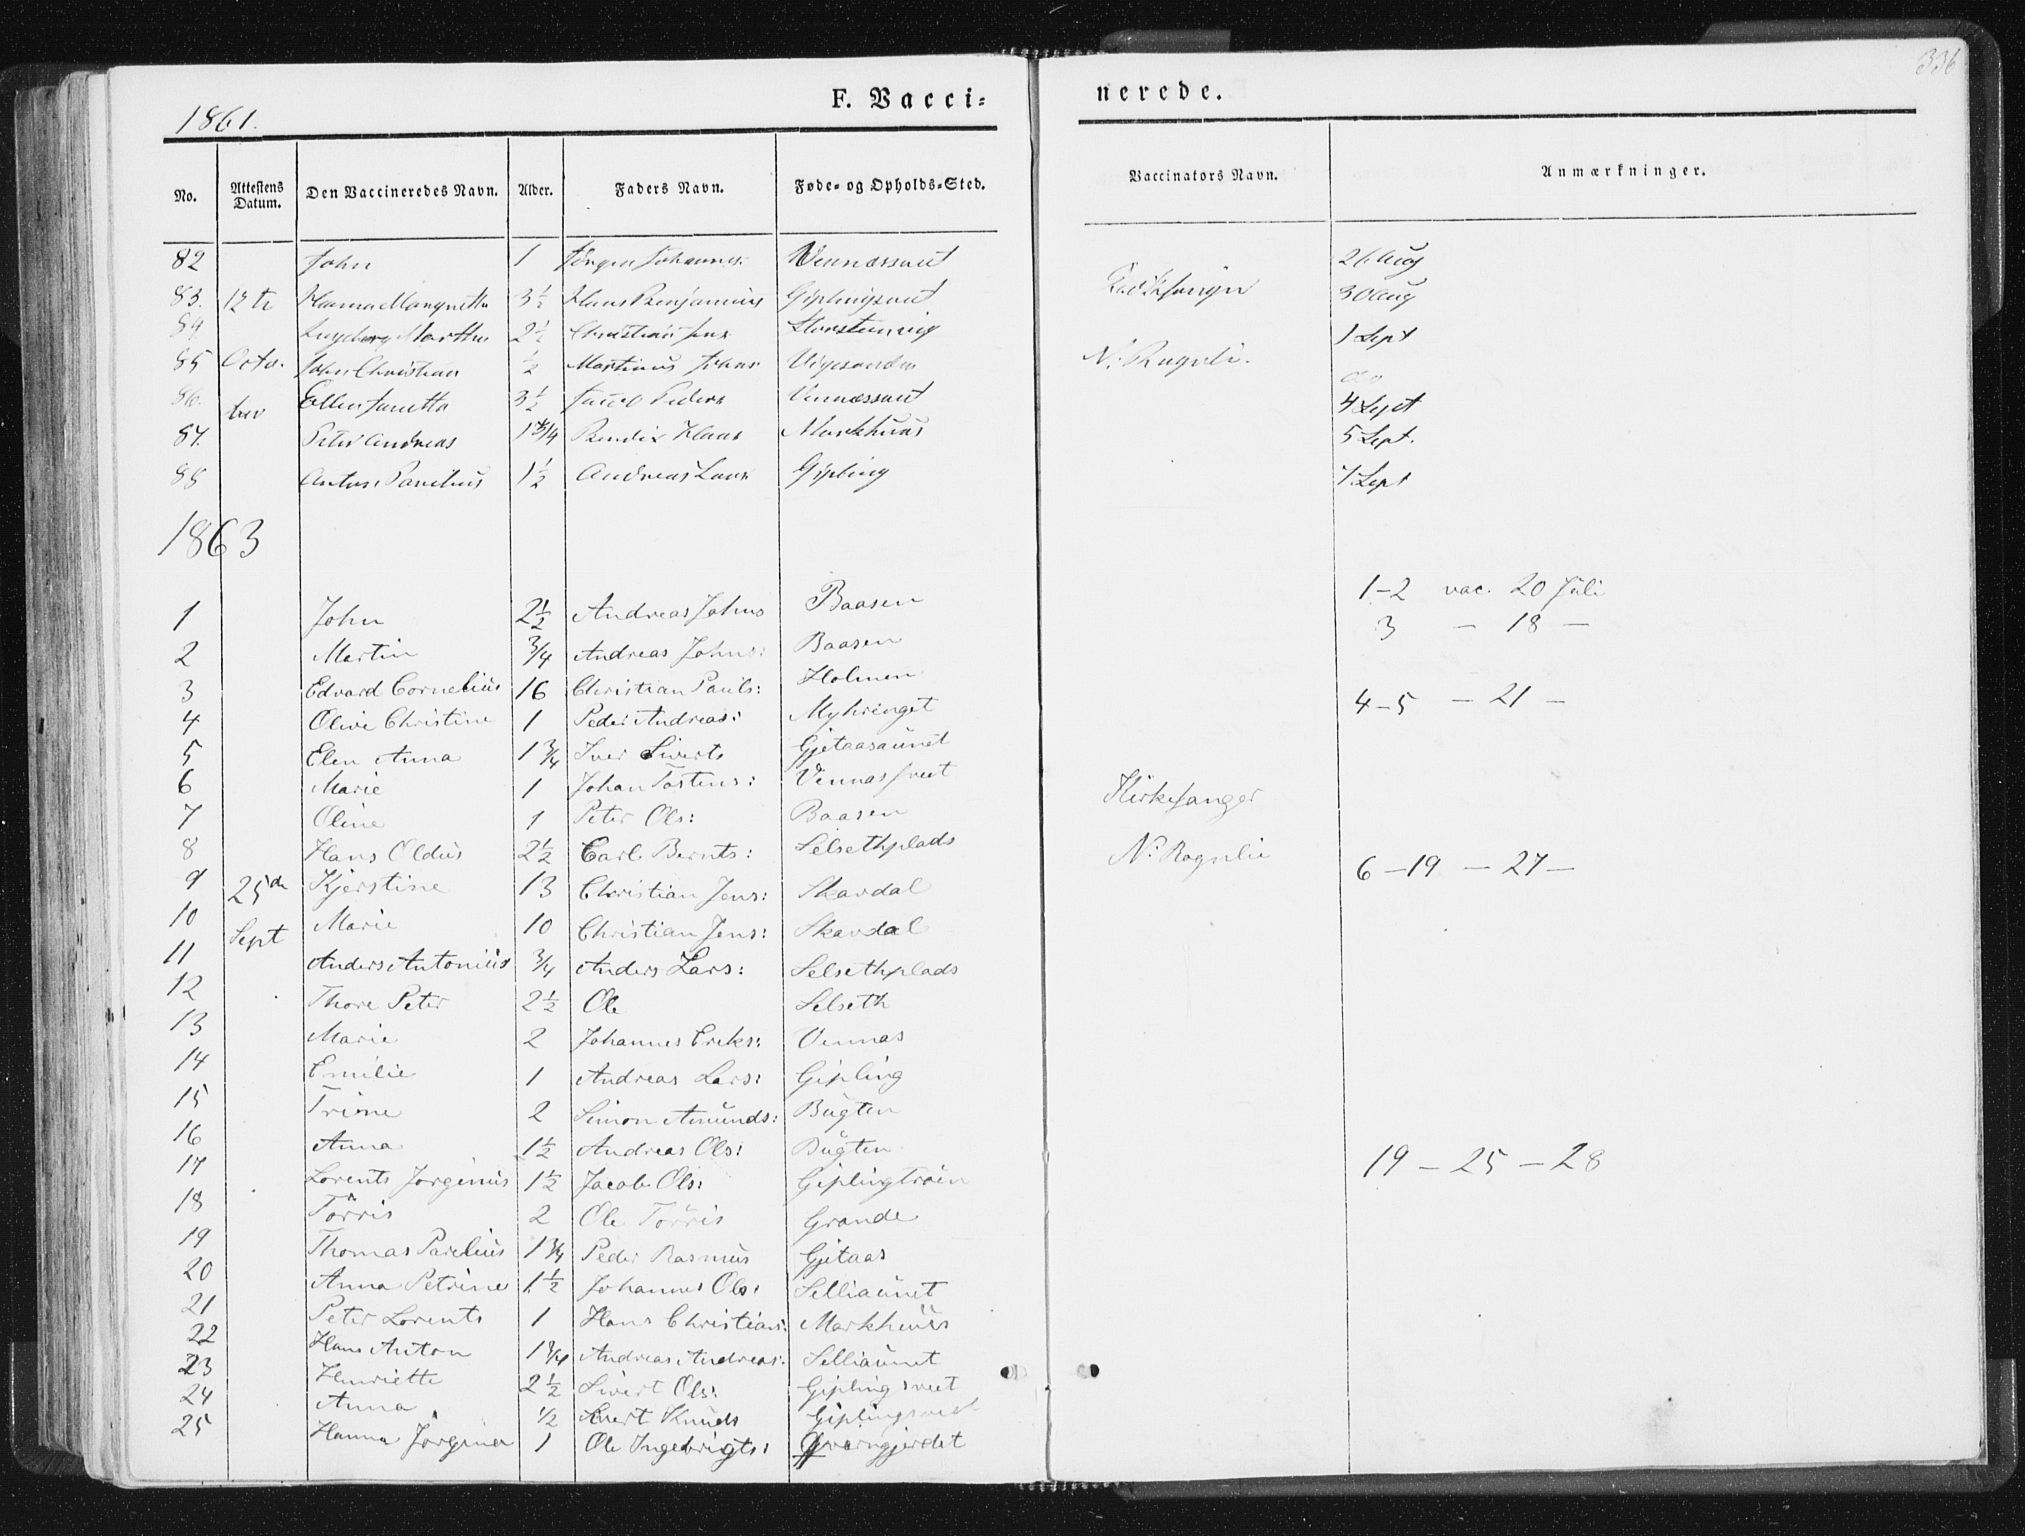 336
1861.
F. Vacci=
nerede.
No. Attestens Datum. Den Vaccineredes Navn. Alder. Faders Navn. Føde= og Opholds=Sted. Vaccinators Navn. Anmærkninger.
82 John 1 Jörgen Johannes: 26 Aug
83. 12te Hanna 3½ Hans Benjamins 30 Aug
84 Martha 2½ Christian Jens 1 Sept
85 Octo- John Christian ½ Martinus N. Rognli. do
86. ber Ellen 3½ Peders 4 Sept
87. Peter Andreas 1 3/4 Bendix Hans Markhuus 5 Sept.
88 Anton Parelius 1½ Andreas Lars Gipling 7 Sept
1863
1 John 2½ Andreas Johns Baasen 1–2 vac. 20 Juli
2 Martin 3/4 Andreas Johns: Baasen 3 – 18 –
3 Edvard Cornelius 16 Christian Pauls: Holmen
4 Olive Christine 1 Peder Andreas: Myhringet 4–5 – 21 –
5 Elen Anna 1 3/4 Iver Siverts Gjetaasaunet
6 Marie 1 Johan Tostens: Vennassveet Kirkesanger
7 Oline 1 Peter Ols: Baasen
8 Hans Oldus 2½ Carl Bernts: Selsethplads N. Rognlie
9 25de Kjerstine 13 Christian Jens: Skavdal 6–19 – 27 –
10 Sept Marie 10 Christian Jens: Skavdal
11 Anders Antonius 3/4 Anders Lars: Selsethplads
12 Thore Peter 2½ Ole Selseth
13 Marie 2 Johannes Ereks: Vennas
14 Emilie 1 Andreas Lars: Gipling
15 Trine 2 Simon Amunds: Bugten
16 Anna 1½ Andreas Ols: Bugten
17 Lorents Jörginus 1½ Jacob Ols: Giplingtröen 19 – 25 – 28
18 Törris 2 Ole Törris Grande
19 Thomas Parelius 1 3/4 Peder Rasmus Gjetaas
20 Anna Petrine 1½ Johannes Ols: Selliaunet
21 Peter Lorents 1 Hans Christian: Markhuus
22 Hans Anton 1 3/4 Andreas Andreas: Selliaunet
23 Henriette 2½ Sivert Ols: Giplingsveet
24 Anna 1/2 Knuds Giplingsveet
25 Hanna Jörgine 1 Ole Ingebrigts: Qverngjerdet